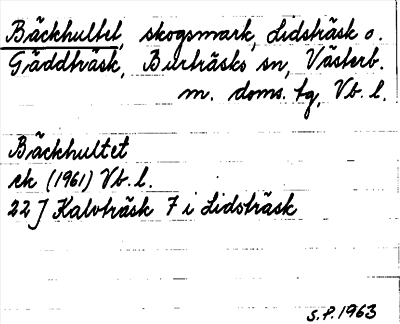 Bäckhultet, skogsmark, Lidsträsk o.
Gäddträsk, Burträsks sn, Västerb.
m. doms. tg, Vb. l.
Bäckhultet
ek (1961) Vb. l.
22 J Kalvträsk 7 i Lidsträsk
S.P. 1963